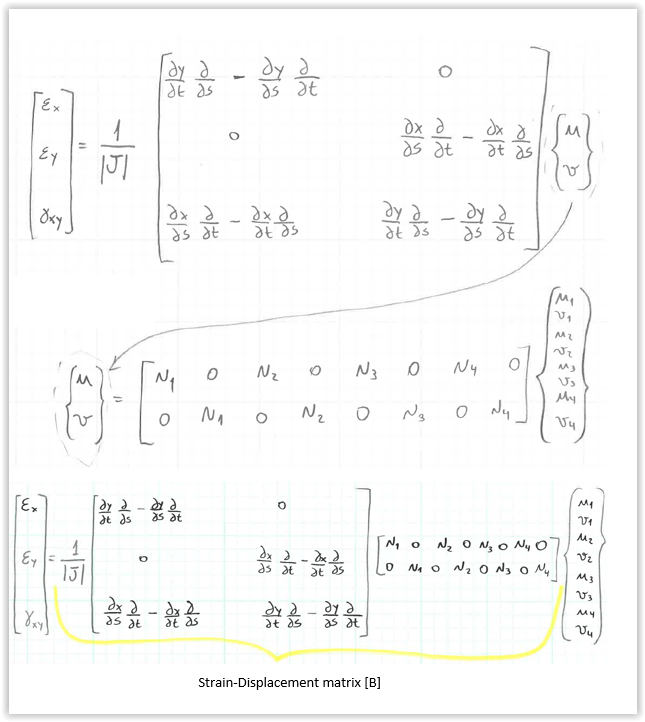 [εx εy γxy] = 1/|J| [∂y/∂t ∂/∂s − ∂y/∂s ∂/∂t    0
0    ∂x/∂s ∂/∂t − ∂x/∂t ∂/∂s
∂x/∂s ∂/∂t − ∂x/∂t ∂/∂s    ∂y/∂t ∂/∂s − ∂y/∂s ∂/∂t] {u v}
{u v} = [N1 0 N2 0 N3 0 N4 0
0 N1 0 N2 0 N3 0 N4] {u1 v1 u2 v2 u3 v3 u4 v4}
[εx εy γxy] = 1/|J| [∂y/∂t ∂/∂s − ∂y/∂s ∂/∂t    0
0    ∂x/∂s ∂/∂t − ∂x/∂t ∂/∂s
∂x/∂s ∂/∂t − ∂x/∂t ∂/∂s    ∂y/∂t ∂/∂s − ∂y/∂s ∂/∂t] [N1 0 N2 0 N3 0 N4 0
0 N1 0 N2 0 N3 0 N4] {u1 v1 u2 v2 u3 v3 u4 v4}
Strain-Displacement matrix [B]